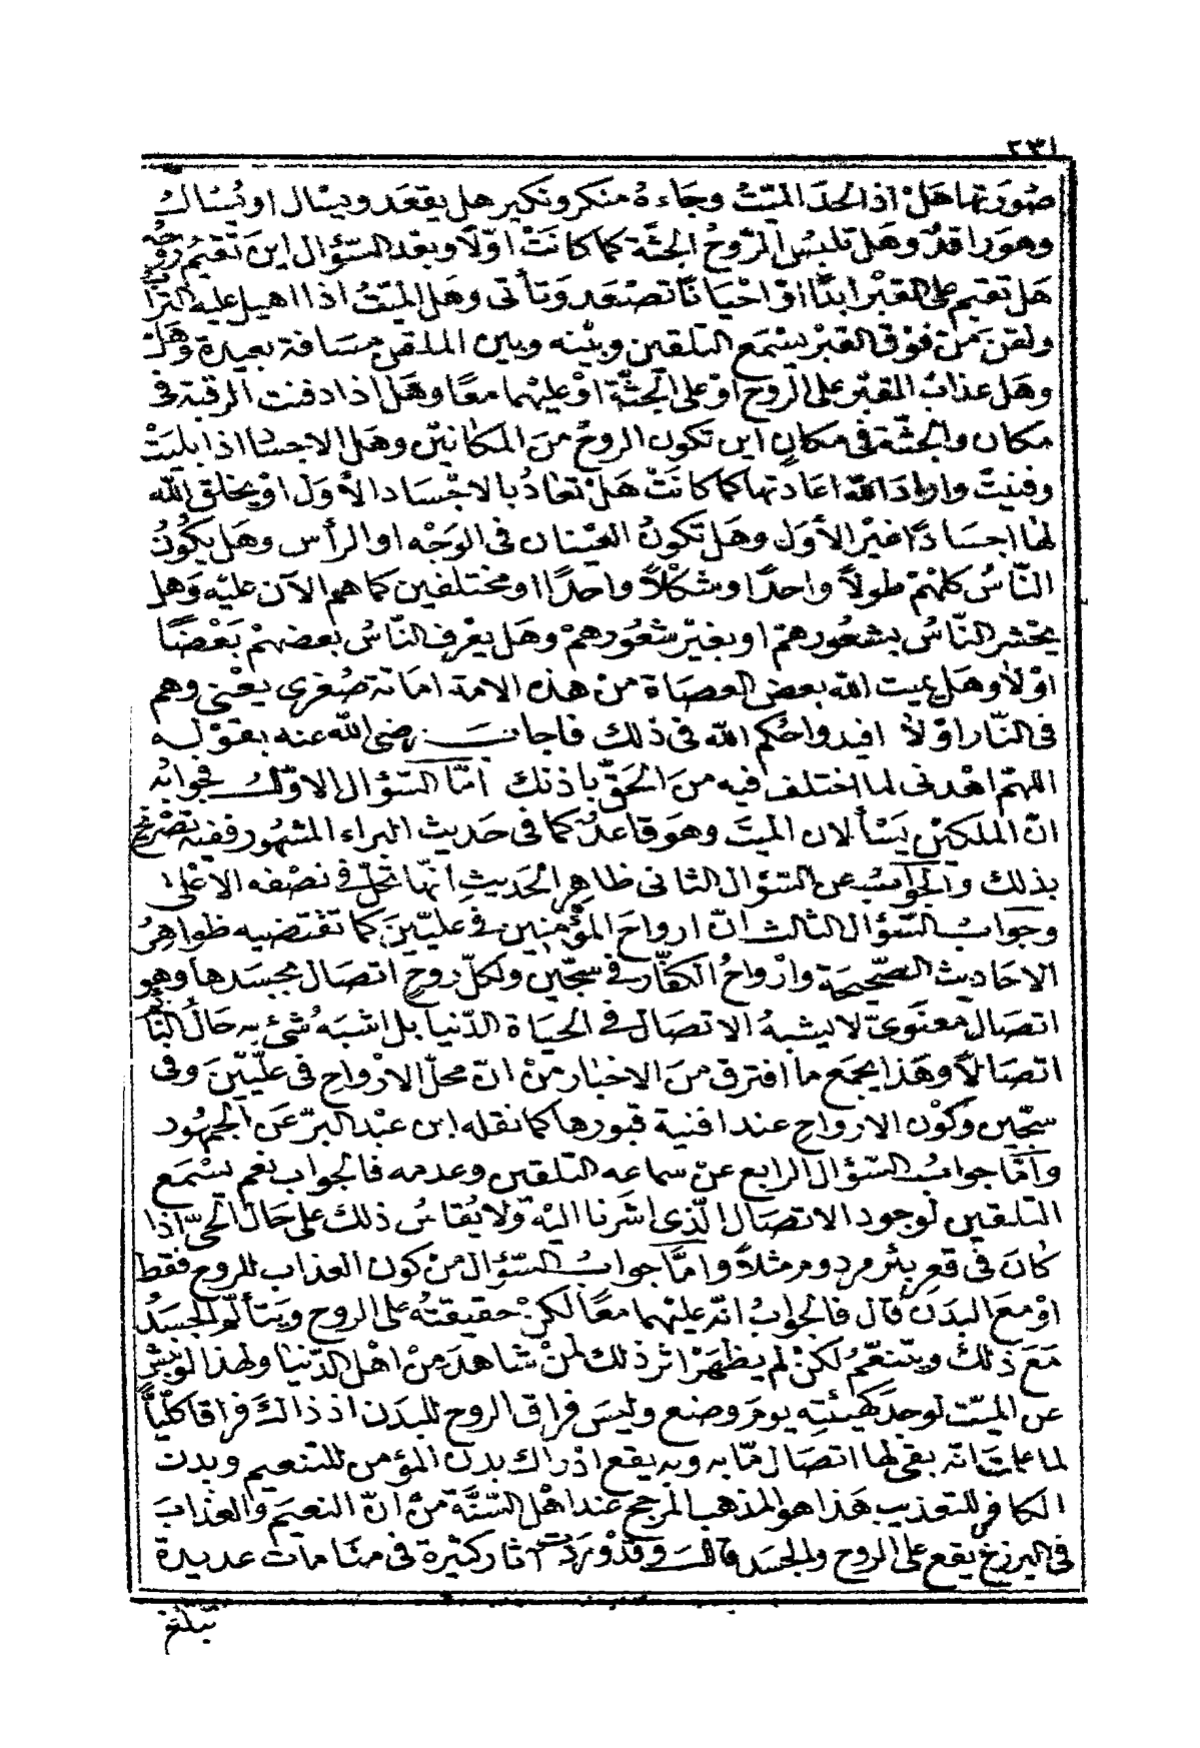 ٢٣١
صُورَتها هَلْ اذا لحدَ الميّتُ وجَاءهُ منكر ونكير هل يقعَد ويسال او يُسَالُ
وهوَ راقدٌ وهَل تلبسُ الرّوحُ الجثَّة كما كانَتْ اوّلاً وبعد السّؤال اين تقيم روحُه
هَل تقيم على القبْر ابدًا اوْ احْيانًا تصْعَد وَتأتى وهَل الميّتُ اذا اهيل عليه التراب
ولقنَ منْ فوْق القبْر يسْمَع التلقين وبيْنه وبين الملقن مسَافة بعيدة وَهَلْ
وهَل عذابُ القبْر على الرّوح اوْ على الجثّة اوْ عليْهما معًا وهَل اذا دفنت الرقبة فى
مكان والجثّة فى مكانٍ اين تكون الروحُ منَ المكانيْن وهَل الاجسَاد اذا بليَتْ
وفنيتْ وارادَ الله اعَادتها كما كانَتْ هَلْ تعَادُ بالاجْسَاد الأوَل اوْ يخلق الله
لها اجسَادًا غيْر الأوَل وهَل تكونُ العيْنان فى الوَجْه او الرأس وهَل يكُونُ
النّاسُ كلهُمْ طولاً واحدًا وشكْلاً واحدًا او مختلفين كما هم الآن عليْه وَهل
يحْشر النّاسُ بشعُورهمْ او بغيْر شعُورهمْ وهَل يعْرف النّاسُ بعضهمْ بَعْضًا
اوْ لاَ وهَل يميت الله بعض العصَاة منْ هذه الامة امَاتة صُغرى يعْنى وهم
فى النّار اوْ لاَ افيدوا حُكم الله فى ذلك فاجابَ رضى الله عنه بقوْله
اللهمّ اهْدنى لما اختلف فيه منَ الحَقّ باذنك امّا السّؤال الاوّل فجوابُه
انّ الملكيْن يَسْألان الميتَ وهوَ قاعدٌ كما فى حَديث البراء المشهُور ففيه تصْريح
بذلك والجَوابُ عن السّؤال الثانى ظاهِر الحَديثِ انّها تحلّ فى نصْفه الاعْلى
وجوابُ السّؤال الثالث انّ ارواحَ المؤمنين فى عليّينَ كما تقتضيه ظواهِرُ
الاحَاديث الصّحيحَة وارْواحُ الكفّار فى سجّين ولكلّ روح اتصَال بجسَدها وهو
اتصَال معنَوىّ لا يشبهُ الاتصَال فى الحيَاة الدّنيا بل اشبَهُ شئ به حَالُ النائم
اتصَالاً وهَذا يجمَع ما افترق منَ الاخبَار منْ انّ محلّ الارْواحِ فى عليّينَ وفى
سجّين وَكوْن الارواحِ عند افنية قبورها كما نقله ابن عبْد البرّ عَن الجمهُور
وَامّا جوابُ السّؤال الرابع عنْ سماعه التلقين وعدمه فالجواب نعم يسْمَع
التلقين لوجود الاتصَال الّذى اشَرنا اليْه ولا يُقاسُ ذلك على حَال الحىّ اذا
كانَ فى قعر بئر مردوم مثلاً وامَّا جوابُ السّؤال منْ كون العذاب للروح فقط
اوْ معَ البدَن قال فالجوابُ انّه عليْهما معًا لكنْ حقيقتُه على الروح ويَتألّم الجسَدُ
مَعَ ذلكَ ويتنعّمُ لكنْ لم يظهَرْ اثر ذلك لمنْ شاهدَ منْ اهْل الدّنيا ولهذا لو نبشَ
عن الميّت لوجدَ كهيْئته يومَ وضع وليسَ فراق الروح للبدَن اذ ذاكَ فراقا كليّاً
لما علمتَ انّه بقى لها اتصَال مّا به وبه يقع ادْراك بدَن المؤمن للتنعيم وبدن
الكافر للتعذيب هَذا هو المذهب المرجح عند اهْل السّنَّة منْ انّ النعيمَ والعذابَ
فى البرزخ يقع على الروح والجسَد قالَ وقدْ ورَدَت آثار كثيرة فى منامات عديدة
تبلغ